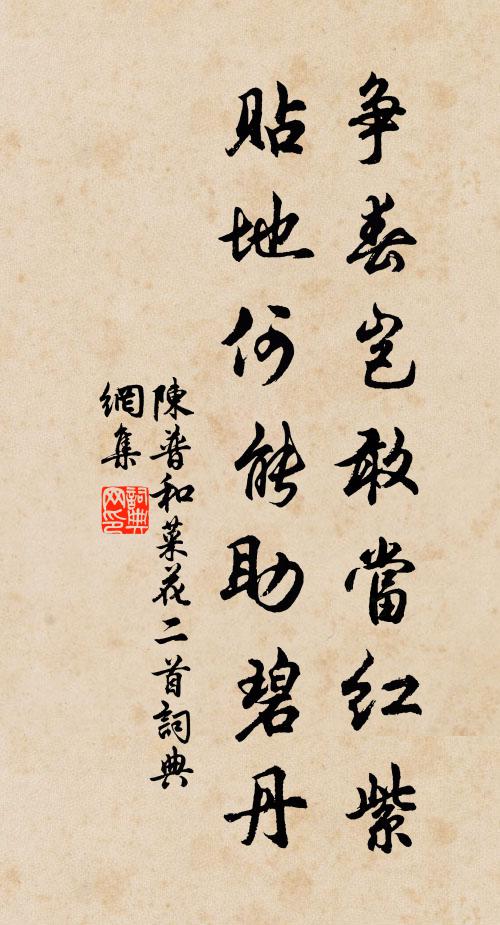 争春岂敢當红紫
貼地何能助碧丹
陳普和菜花二首詞典
網集
詞典
网印